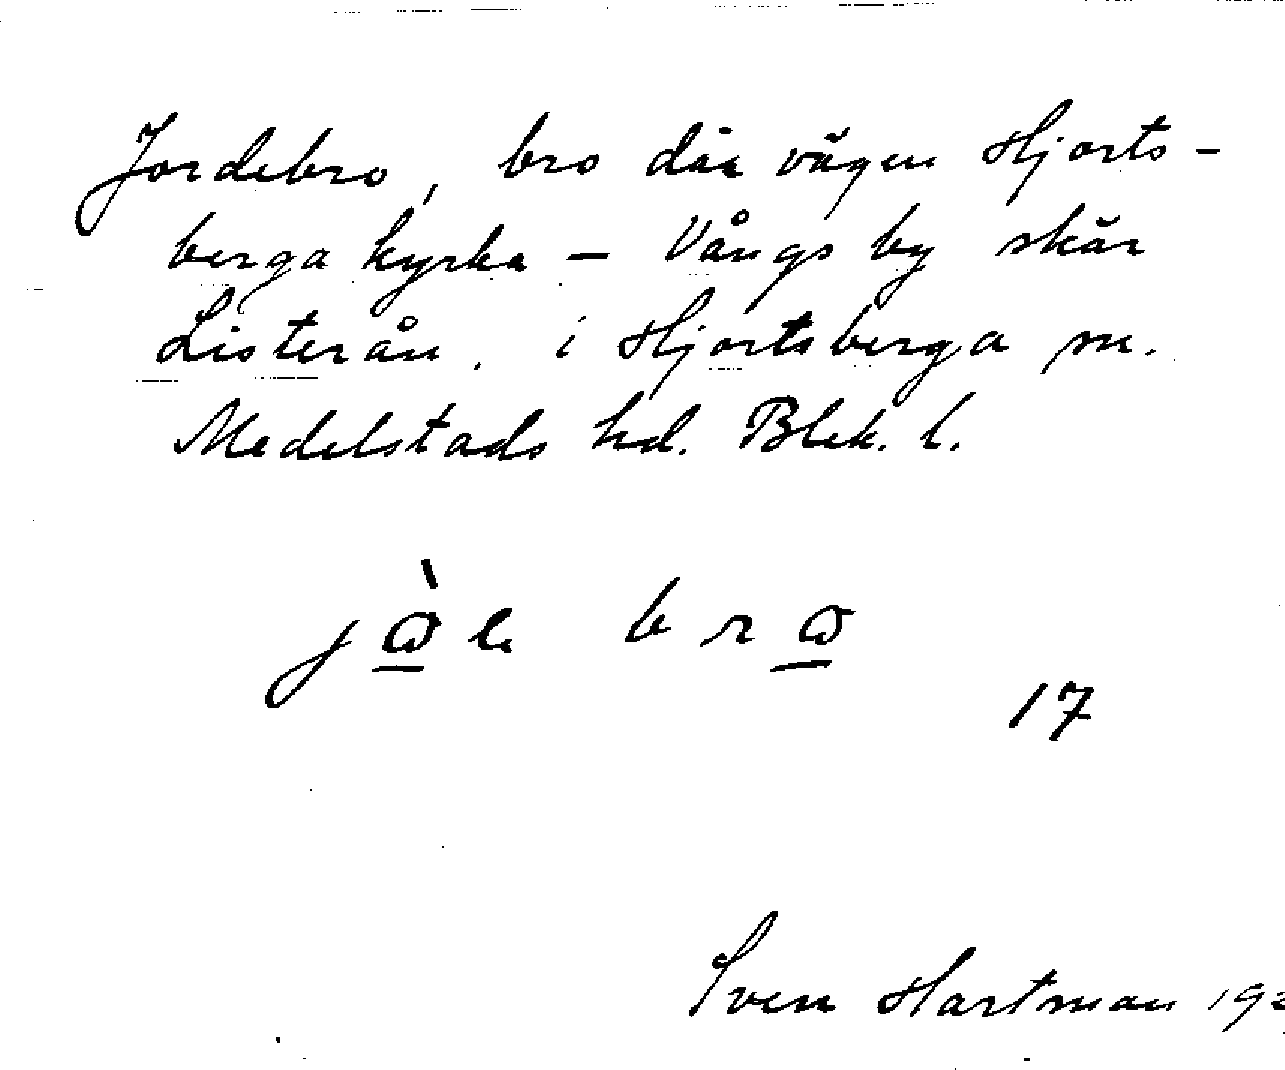 Jordebro, bro där vägen Hjorts-
berga kyrka – Vångs by skär
Listerån. i Hjortsberga sn.
Medelstads hd. Blek. l.
17
Sven Hartman